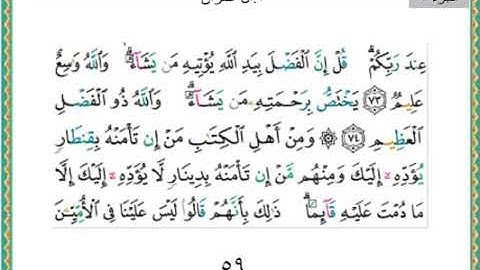 عِندَ رَبِّكُمْ ۗ قُلْ إِنَّ ٱلْفَضْلَ بِيَدِ ٱللَّهِ يُؤْتِيهِ مَن يَشَآءُ ۗ وَٱللَّهُ وَٰسِعٌ
عَلِيمٌ ﴿٧٣﴾ يَخْتَصُّ بِرَحْمَتِهِۦ مَن يَشَآءُ ۗ وَٱللَّهُ ذُو ٱلْفَضْلِ
ٱلْعَظِيمِ ﴿٧٤﴾ ۞ وَمِنْ أَهْلِ ٱلْكِتَٰبِ مَنْ إِن تَأْمَنْهُ بِقِنطَارٍ
يُؤَدِّهِۦٓ إِلَيْكَ وَمِنْهُم مَّنْ إِن تَأْمَنْهُ بِدِينَارٍ لَّا يُؤَدِّهِۦٓ إِلَيْكَ إِلَّا
مَا دُمْتَ عَلَيْهِ قَآئِمًا ۗ ذَٰلِكَ بِأَنَّهُمْ قَالُوا۟ لَيْسَ عَلَيْنَا فِى ٱلْأُمِّيِّـۧنَ
٥٩